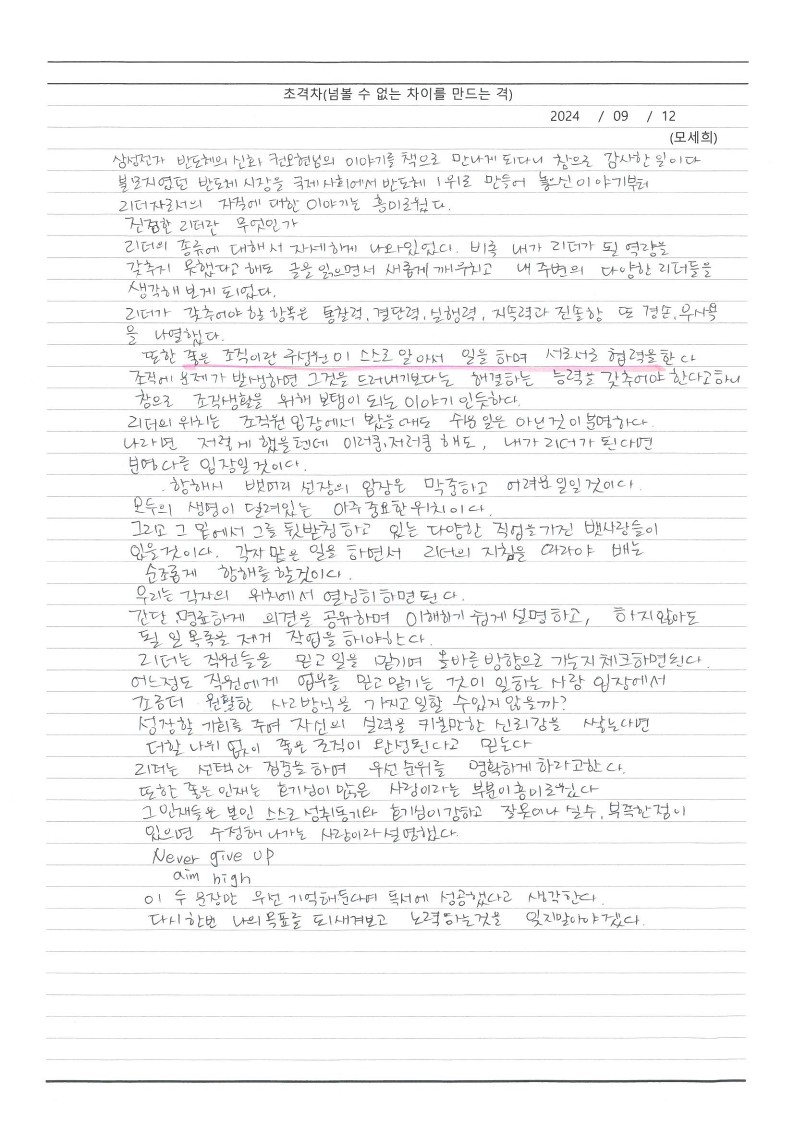 초격차(넘볼 수 없는 차이를 만드는 격)
2024 / 09 / 12
(모세희)
삼성전자 반도체의 신화 권오현님의 이야기를 책으로 만나게 되다니 참으로 감사한 일이다
불모지였던 반도체 시장을 국제사회에서 반도체 1위로 만들어 놓으신 이야기부터
리더자로서의 자질에 대한 이야기는 흥미로웠다.
진정한 리더란 무엇인가
리더의 종류에 대해서 자세하게 나와있었다. 비록 내가 리더가 될 역량을
갖추지 못했다고 해도 글을 읽으면서 새롭게 깨우치고 내 주변의 다양한 리더들을
생각해 보게 되었다.
리더가 갖추어야 할 항목은 통찰력, 결단력, 실행력, 지속력과 진솔함 또 겸손, 무사욕
을 나열했다.
또한 좋은 조직이란 구성원이 스스로 알아서 일을 하며 서로서로 협력을 한다
조직에 문제가 발생하면 그것을 드러내기보다는 해결하는 능력을 갖추어야 한다고하니
참으로 조직생활을 위해 보탬이 되는 이야기 인듯하다.
리더의 위치는 조직원 입장에서 봤을때도 쉬운 일은 아닌것이 분명하다.
나라면 저렇게 했을텐데 이러쿵.저러쿵 해도, 내가 리더가 된다면
분명 다른 입장일것이다.
.항해사 뱃머리 선장의 입장은 막중하고 어려운 일일것이다.
모두의 생명이 달려있는 아주 중요한 위치이다.
그리고 그 밑에서 그를 뒷받침하고 있는 다양한 직업을 가진 뱃사람들이
있을것이다. 각자 맡은 일을 하면서 리더의 지침을 따라야 배는
순조롭게 항해를 할것이다.
우리는 각자의 위치에서 열심히 하면 된다.
간단 명료하게 의견을 공유하며 이해하기 쉽게 설명하고, 하지않아도
될 일 목록을 제거 작업을 해야한다.
리더는 직원들을 믿고 일을 맡기며 올바른 방향으로 가는지 체크하면된다.
어느정도 직원에게 업무를 믿고 맡기는 것이 일하는 사람 입장에서
조금더 원활한 사고방식을 가지고 일할 수있지 않을까?
성장할 기회를 주며 자신의 실력을 키울만한 신뢰감을 쌓는다면
더할 나위 없이 좋은 조직이 완성된다고 믿는다
리더는 선택과 집중을 하며 우선순위를 명확하게 하라고한다.
또한 좋은 인재는 호기심이 많은 사람이라는 부분이 흥미로웠다
그 인재들은 본인 스스로 성취동기와 호기심이 강하고 잘못이나 실수, 부족한 점이
있으면 수정해 나가는 사람이라 설명했다.
Never give up
aim high
이 두 문장만 우선 기억해둔다며 독서에 성공했다고 생각한다.
다시한번 나의 목표를 되새겨보고 노력하는것을 잊지말아야겠다.